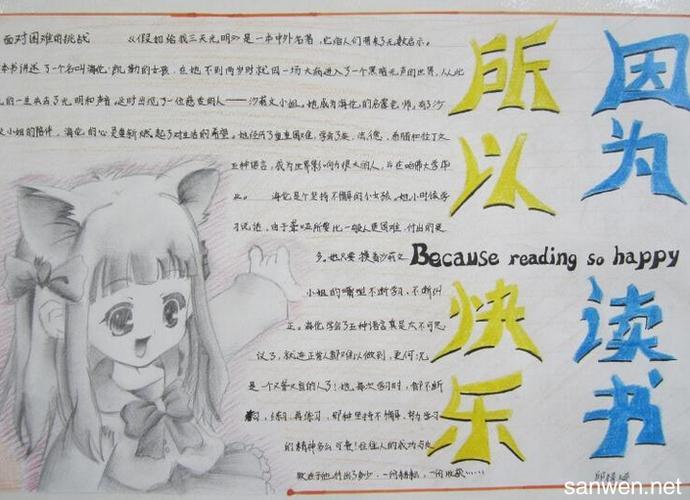 面对困难的挑战 《假如给我三天光明》是一本中外名著，它给人们带来了无数启示。
本书讲述了一个名叫海伦·凯勒的女孩，在她不到两岁时就因一场大病进入了一个黑暗无声的世界，从此
的一生失去了光明和声音。这时出现了一位慈爱的人——沙莉文小姐。她成为海伦的启蒙老师，有了沙
文小姐的陪伴，海伦的心是重新燃起了对生活的希望。她经历了重重困难，学会了英、法、德、希腊和拉丁文
五种语言，成为世界影响力很大的人，并在哈佛大学毕
业。 海伦是个坚持不懈的小女孩。她小时候学
习说话，由于聋哑所要比一般人更困难，付出的更
多。她只要摸着沙莉文
小姐的嘴型不断学习、不断纠
正。海伦学会了五种语言真是太不可思
议了，就连正常人都难以做到，更何况
是一个又聋又盲的人了！她每次学习时，都不断
练习、再练习，那种坚持不懈、努力学习
的精神多么可贵！往往人的成功与失
败在于他付出了多少，一份耕耘，一份收获……
因为
所以
Because reading so happy
读书
快乐
sanwen.net